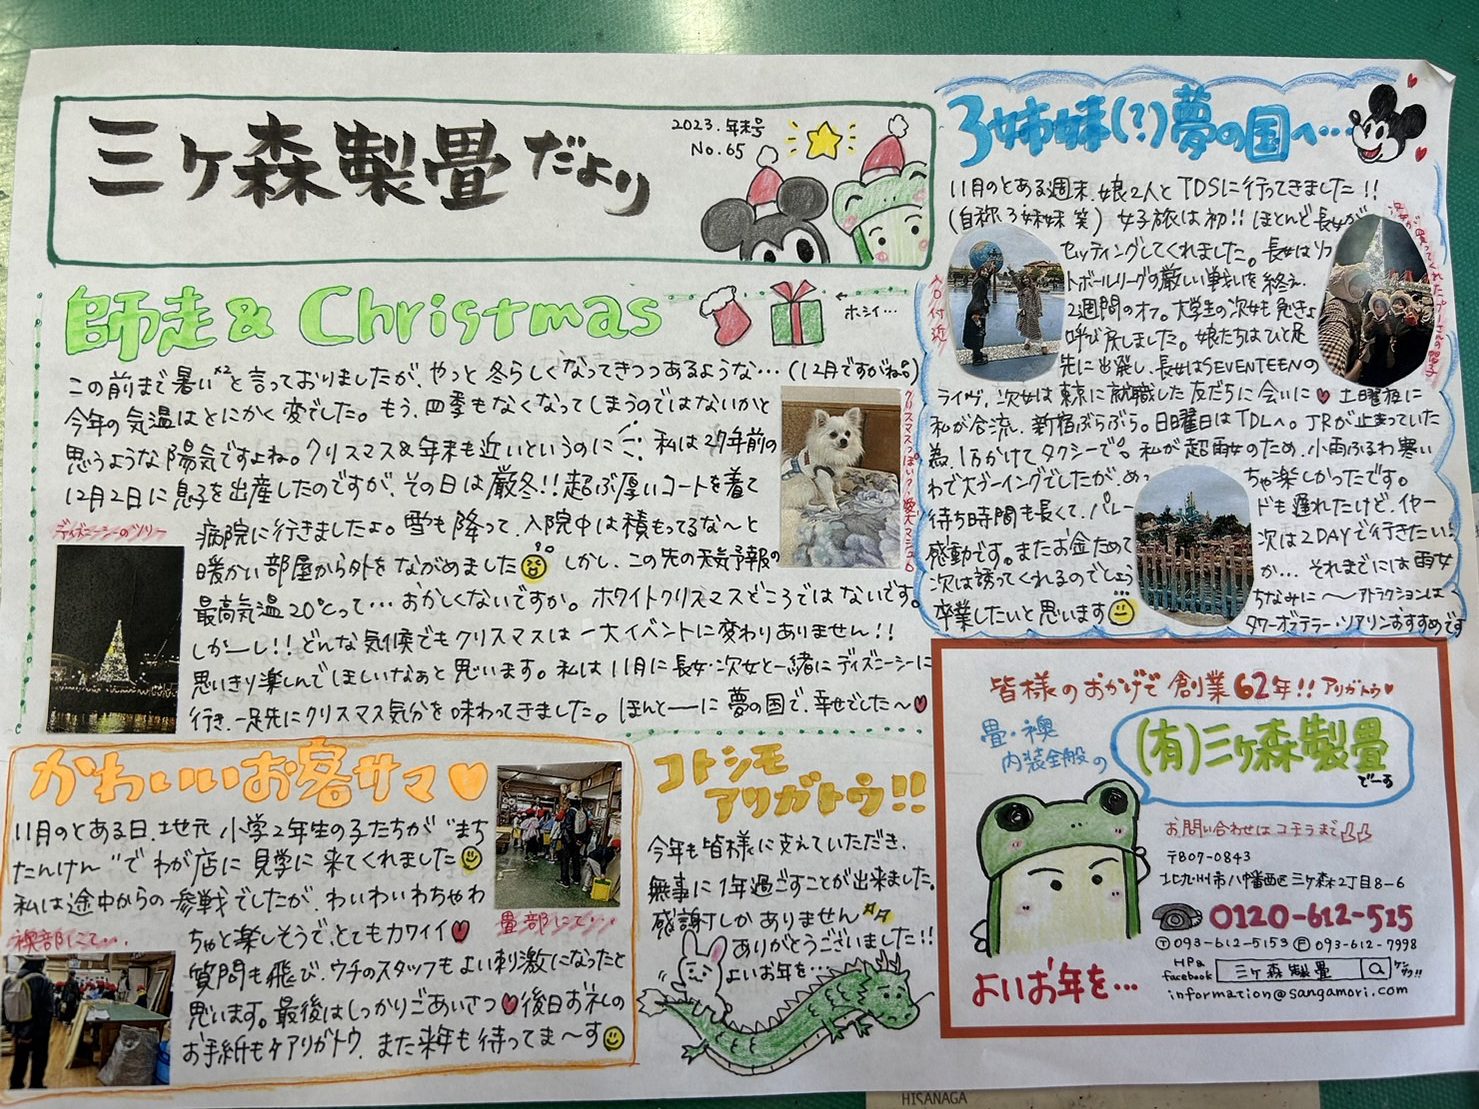 三ヶ森製畳だより
2023.年末号
No.65
師走&Christmas
←ホシイ…
この前まで暑い×2と言っておりましたが、やっと冬らしくなってきつつあるような…(12月ですがね)
今年の気温はとにかく変でした。もう、四季もなくなってしまうのではないかと
思うような陽気ですよね。クリスマス&年末も近いというのに 私は27年前の
12月2日に息子を出産したのですが、その日は厳冬!!超ぶ厚いコートを着て
病院に行きましたよ。雪も降って、入院中は積もってるな〜と
暖かい部屋から外をながめました しかし、この先の天気予報の
最高気温20℃って…おかしくないですか。ホワイトクリスマスどころではないです。
しかーし!!どんな気候でもクリスマスは一大イベントに変わりありません!!
思いきり楽しんでほしいなぁと思います。私は11月に長女・次女と一緒にディズニーシーに
行き、一足先にクリスマス気分を味わってきました。ほんとーーに夢の国で、幸せでした〜♥
クリスマスっぽい?愛犬マシュ
ディズニーシーのツリー
3姉妹(?)夢の国へ…
11月のとある週末、娘2人とTDSに行ってきました!!
(自称3姉妹 笑) 女子旅は初!!ほとんど長女が
セッティングしてくれました。長女はソフ
トボールリーグの厳しい戦いを終え、
2週間のオフ。大学生の次女も急きょ
呼び戻しました。娘たちはひと足
先に出発し、長女はSEVENTEENの
ライヴ、次女は東京に就職した友だちに会いに♥ 土曜夜に
私が合流、新宿ぶらぶら。日曜日はTDLへ。JRが止まっていた
為、1万かけてタクシーで。私が超雨女のため、小雨ふるわ寒い
わで大ブーイングでしたが、めっちゃ楽しかったです。
待ち時間も長くて、パレードも遅れたけど、イヤー
感動です。またお金ためて次は2DAYで行きたい!
次は誘ってくれるのでしょうか…それまでには雨女
卒業したいと思います ちなみに〜アトラクションは
タワーオブテラー・ソアリンおすすめです
入口付近
かわいいお客サマ♥
11月のとある日、地元 小学2年生の子たちが"まち
たんけん"でわが店に見学に来てくれました
私は途中からの参戦でしたが、わいわいわちゃわ
ちゃと楽しそうで、とてもカワイイ♥
質問も飛び、ウチのスタッフもよい刺激になったと
思います。最後はしっかりごあいさつ♥後日お礼の
お手紙もアリガトウ、また来年も待ってま〜す
畳部にて…
襖部にて…
コトシモ
アリガトウ!!
今年も皆様に支えていただき、
無事に1年過ごすことが出来ました。
感謝しかありません
ありがとうございました!!
よいお年を…
皆様のおかげで創業62年!!アリガトウ♥
畳・襖
内装全般の
(有)三ヶ森製畳
でーす
お問い合わせはコチラまで
〒807-0843
北九州市八幡西区三ヶ森2丁目8-6
0120-612-515
Ⓣ093-612-5153 Ⓕ093-612-7998
HP&
facebook
三ヶ森製畳
information@sangamori.com
よいお年を…
HISANAGA